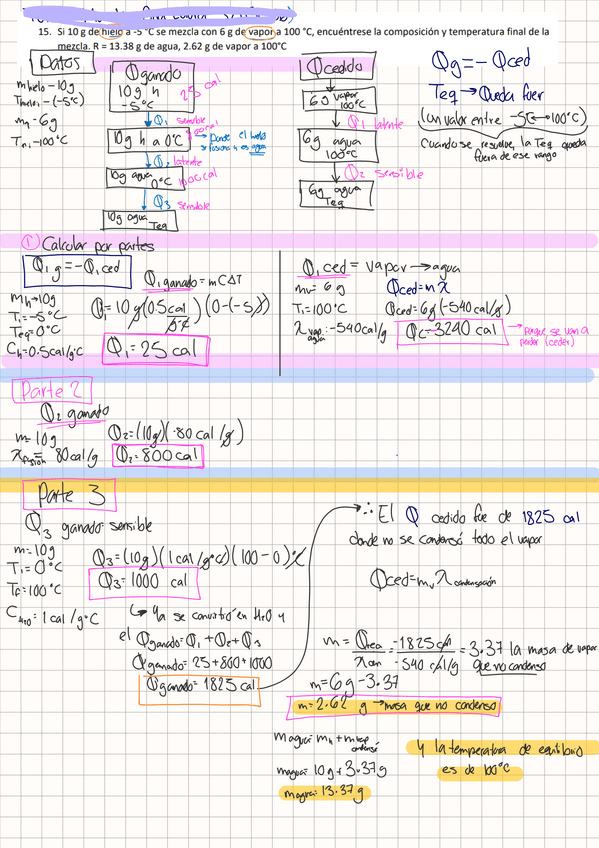 15. Si 10 g de hielo a -5 °C se mezcla con 6 g de vapor a 100 °C, encuéntrese la composición y temperatura final de la
mezcla. R = 13.38 g de agua, 2.62 g de vapor a 100°C
Datos
m hielo - 10g
T hielo - (-5°C)
mv - 6g
Tvi - 100°C
Q ganado
10g h
-5°C
25 cal
Q1 sensible
10g h a 0°C
→ Donde el hielo
se fusiona y es agua
Q2 latente
10g agua 0°C
Q3 sensible
10g agua Teq
Q cedido
6g vapor 100°C
Q1 latente
6g agua 100°C
Q2 sensible
6g agua Teq
Qg = - Qced
Teq → Queda fuer
(Un valor entre -5°C → 100°C)
Cuando se resuelve, la Teq queda
fuera de ese rango
① Calcular por partes
Q1g = - Q1ced
Mh → 10g
T1 = -5°C
Teq = 0°C
Ch = 0.5cal/g°C
Q1ganado = mCΔT
Q1 = 10g(0.5cal/g°C)(0-(-5))
Q1 = 25 cal
Q1ced = vapor → agua
mv = 6g
T1 = 100°C
λvap agua = -540cal/g
Qced = mλ
Qced = 6g(-540cal/g)
Qc = -3240 cal
→ porque se van a
perder (ceder)
Parte 2
Q2 ganado
m = 10g
λfusión = 80cal/g
Q2 = (10g)(80 cal/g)
Q2 = 800cal
Parte 3
Q3 ganado: sensible
m = 10g
T1 = 0°C
Tf = 100°C
CH2O = 1 cal/g°C
Q3 = (10g)(1cal/g°C)(100-0)°C
Q3 = 1000 cal
↳ ya se convirtió en H2O y
el Qganado = Q1 + Q2 + Q3
Qganado = 25 + 800 + 1000
Qganado = 1825 cal
∴ El Q cedido fue de 1825 cal
donde no se condensó todo el vapor
Qced = mv λcondensación
m = Qcea/λcon = -1825cal/-540 cal/g = 3.37 la masa de vapor
que no condenso
m = 6g - 3.37
m = 2.62 g → masa que no condenso
magua = mh + mvap condensó
magua = 10g + 3.37g
magua = 13.37g
Y la temperatura de equilibrio
es de 100°C